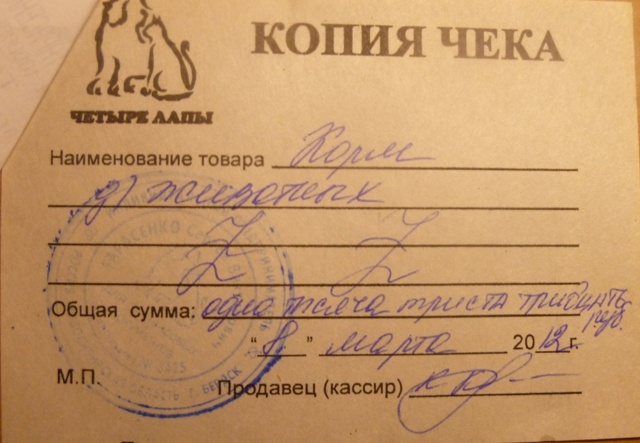 КОПИЯ ЧЕКА
ЧЕТЫРЕ ЛАПЫ
Наименование товара Корм
д/ животных
Z Z
Общая сумма: одна тысяча триста тридцать руб.
"8" марта 2012 г.
М.П.
Продавец (кассир)
ТАРАСЕНКО
ОБЛАСТЬ г. БЕРДСК